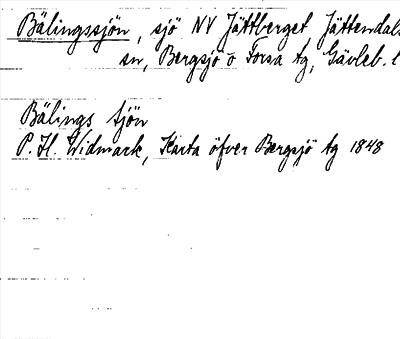 Bälingssjön, sjö NV Jättberget Jättendals
sn, Bergsjö o Forsa tg, Gävleb. l
Bälings sjön
P. H. Widmark, Karta öfver Bergsjö tg 1848